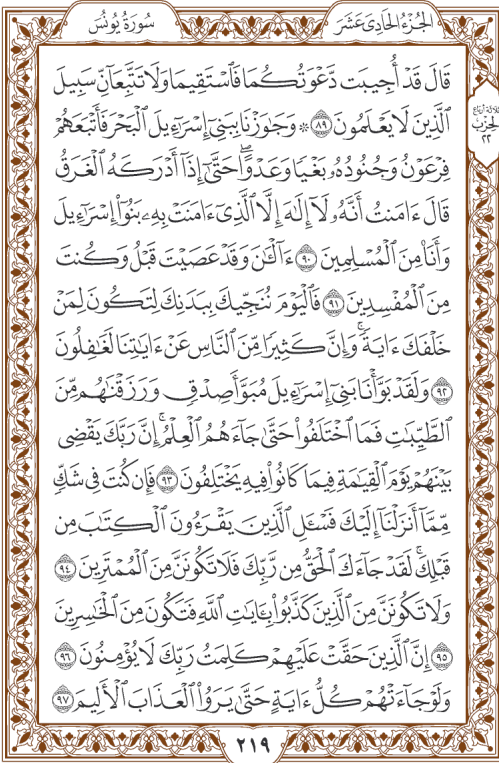 الجُزْءُ الحَادِى عَشَرَ
سُورَةُ يُونُسَ
ثلاثة أرباع
الحزب
٢٢
قَالَ قَدۡ أُجِيبَت دَّعۡوَتُكُمَا فَٱسۡتَقِيمَا وَلَا تَتَّبِعَآنِّ سَبِيلَ
ٱلَّذِينَ لَا يَعۡلَمُونَ ٨٩ ۞ وَجَٰوَزۡنَا بِبَنِيٓ إِسۡرَٰٓءِيلَ ٱلۡبَحۡرَ فَأَتۡبَعَهُمۡ
فِرۡعَوۡنُ وَجُنُودُهُۥ بَغۡيٗا وَعَدۡوًاۖ حَتَّىٰٓ إِذَآ أَدۡرَكَهُ ٱلۡغَرَقُ
قَالَ ءَامَنتُ أَنَّهُۥ لَآ إِلَٰهَ إِلَّا ٱلَّذِيٓ ءَامَنَتۡ بِهِۦ بَنُوٓاْ إِسۡرَٰٓءِيلَ
وَأَنَا۠ مِنَ ٱلۡمُسۡلِمِينَ ٩٠ ءَآلۡـَٰٔنَ وَقَدۡ عَصَيۡتَ قَبۡلُ وَكُنتَ
مِنَ ٱلۡمُفۡسِدِينَ ٩١ فَٱلۡيَوۡمَ نُنَجِّيكَ بِبَدَنِكَ لِتَكُونَ لِمَنۡ
خَلۡفَكَ ءَايَةٗۚ وَإِنَّ كَثِيرٗا مِّنَ ٱلنَّاسِ عَنۡ ءَايَٰتِنَا لَغَٰفِلُونَ
٩٢ وَلَقَدۡ بَوَّأۡنَا بَنِيٓ إِسۡرَٰٓءِيلَ مُبَوَّأَ صِدۡقٖ وَرَزَقۡنَٰهُم مِّنَ
ٱلطَّيِّبَٰتِ فَمَا ٱخۡتَلَفُواْ حَتَّىٰ جَآءَهُمُ ٱلۡعِلۡمُۚ إِنَّ رَبَّكَ يَقۡضِي
بَيۡنَهُمۡ يَوۡمَ ٱلۡقِيَٰمَةِ فِيمَا كَانُواْ فِيهِ يَخۡتَلِفُونَ ٩٣ فَإِن كُنتَ فِي شَكّٖ
مِّمَّآ أَنزَلۡنَآ إِلَيۡكَ فَسۡـَٔلِ ٱلَّذِينَ يَقۡرَءُونَ ٱلۡكِتَٰبَ مِن
قَبۡلِكَۚ لَقَدۡ جَآءَكَ ٱلۡحَقُّ مِن رَّبِّكَ فَلَا تَكُونَنَّ مِنَ ٱلۡمُمۡتَرِينَ ٩٤
وَلَا تَكُونَنَّ مِنَ ٱلَّذِينَ كَذَّبُواْ بِـَٔايَٰتِ ٱللَّهِ فَتَكُونَ مِنَ ٱلۡخَٰسِرِينَ
٩٥ إِنَّ ٱلَّذِينَ حَقَّتۡ عَلَيۡهِمۡ كَلِمَتُ رَبِّكَ لَا يُؤۡمِنُونَ ٩٦
وَلَوۡ جَآءَتۡهُمۡ كُلُّ ءَايَةٍ حَتَّىٰ يَرَوُاْ ٱلۡعَذَابَ ٱلۡأَلِيمَ ٩٧
٢١٩